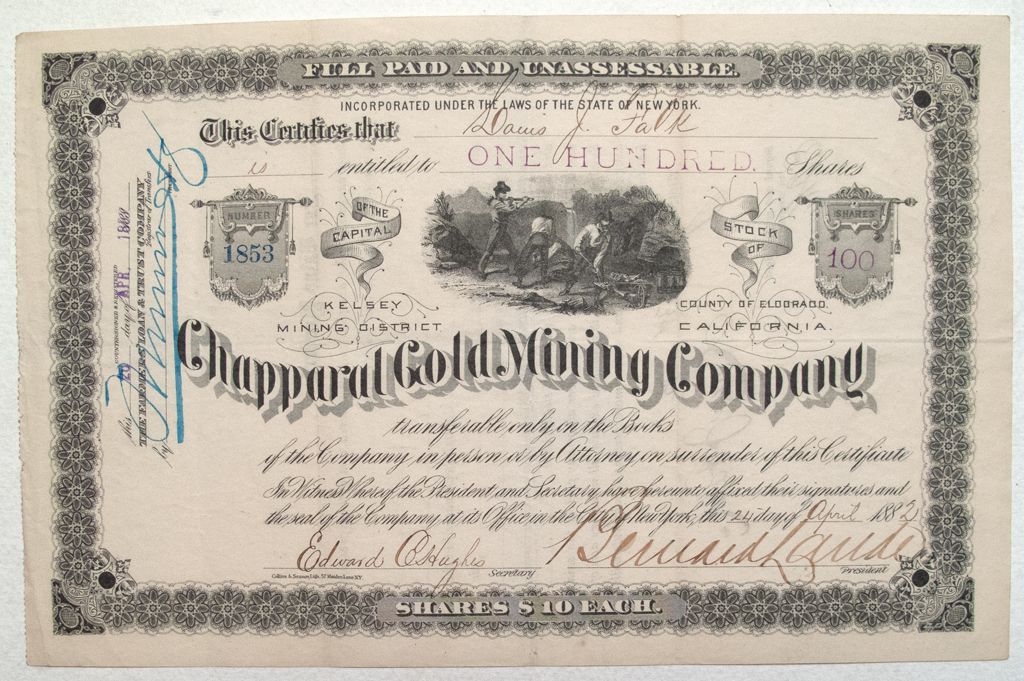 FULL PAID AND UNASSESSABLE.
INCORPORATED UNDER THE LAWS OF THE STATE OF NEW YORK.
This Certifies that Louis J. Falk
is entitled to ONE HUNDRED. Shares
NUMBER
1853
OF THE
CAPITAL
STOCK
OF
SHARES
100
KELSEY
MINING DISTRICT
COUNTY OF ELDORADO.
CALIFORNIA.
Chapparal Gold Mining Company
transferable only on the Books
of the Company in person or by Attorney on surrender of this Certificate
In Witness Whereof the President and Secretary have hereunto affixed their signatures and
the seal of the Company at its Office in the City of New York, this 24 day of April 1882
Edward O'Hughes Secretary
President
SHARES $10 EACH.
COUNTERSIGNED & REGISTERED
this 20 day of APR. 188
THE FARMERS' LOAN & TRUST COMPANY
Registrar of Transfers
by